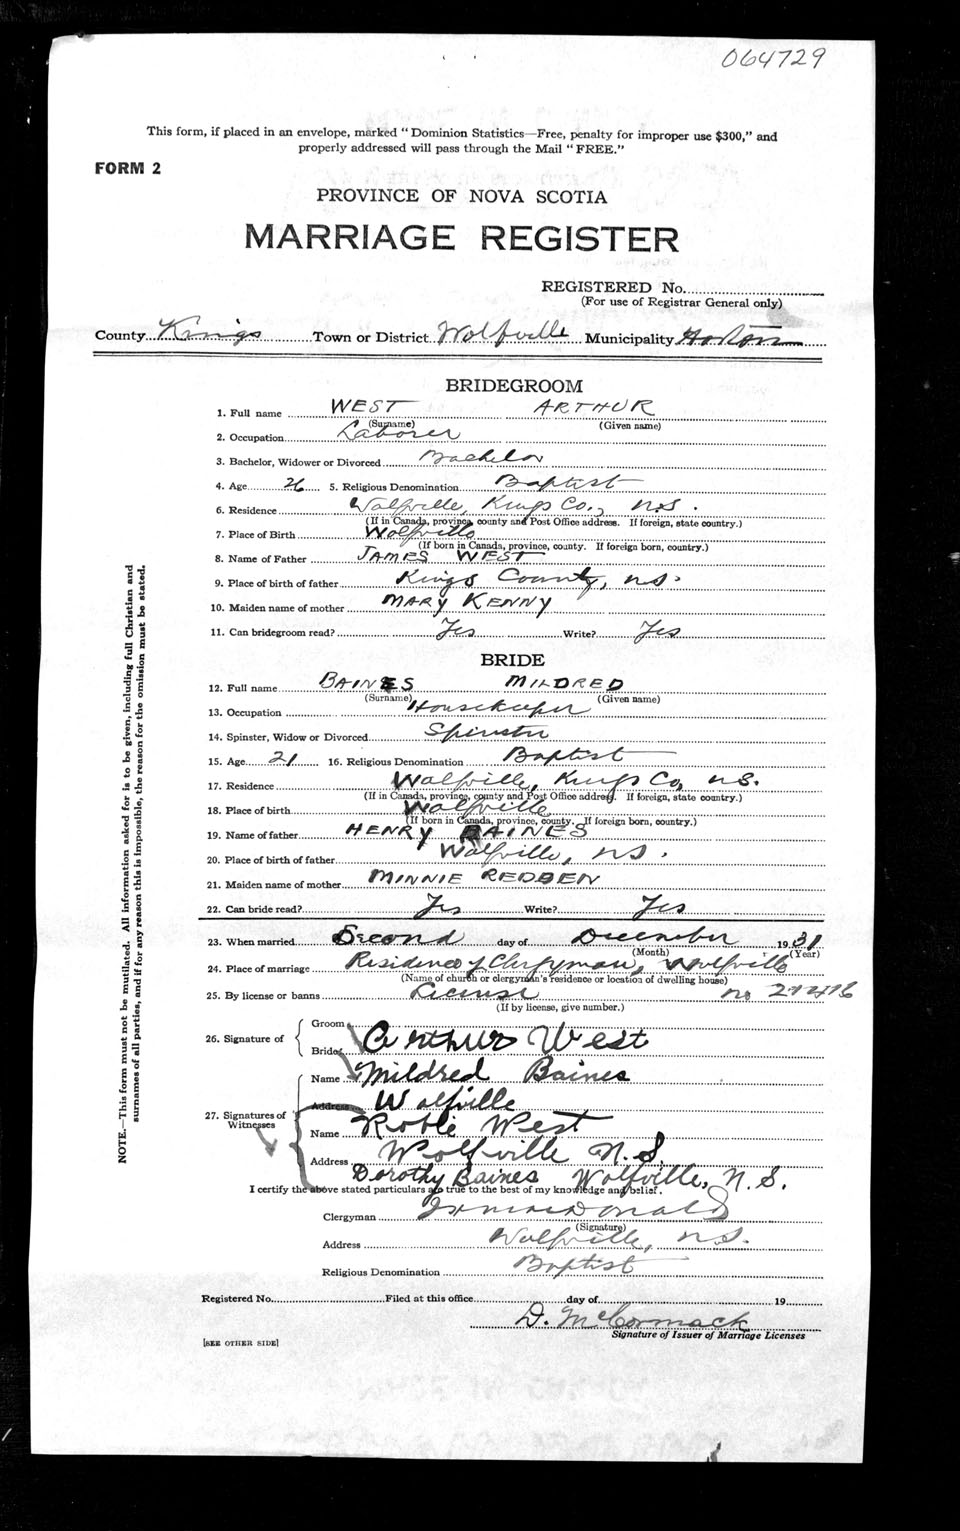 064729
This form, if placed in an envelope, marked "Dominion Statistics—Free, penalty for improper use $300," and
properly addressed will pass through the Mail "FREE."
FORM 2
PROVINCE OF NOVA SCOTIA
MARRIAGE REGISTER
REGISTERED No.
(For use of Registrar General only)
County Kings Town or District Wolfville Municipality Horton
BRIDEGROOM
1. Full name WEST ARTHUR
(Surname) (Given name)
2. Occupation Laborer
3. Bachelor, Widower or Divorced Bachelor
4. Age 26 5. Religious Denomination Baptist
6. Residence Wolfville, Kings Co., N.S.
(If in Canada, province, county and Post Office address. If foreign, state country.)
7. Place of Birth Wolfville
(If born in Canada, province, county. If foreign born, country.)
8. Name of Father JAMES WEST
9. Place of birth of father Kings County, N.S.
10. Maiden name of mother MARY KENNY
11. Can bridegroom read? Yes Write? Yes
BRIDE
12. Full name BAINES MILDRED
(Surname) (Given name)
13. Occupation Housekeeper
14. Spinster, Widow or Divorced Spinster
15. Age 21 16. Religious Denomination Baptist
17. Residence Wolfville, Kings Co, N.S.
(If in Canada, province, county and Post Office address. If foreign, state country.)
18. Place of birth Wolfville
(If born in Canada, province, county. If foreign born, country.)
19. Name of father HENRY BAINES
20. Place of birth of father Wolfville, N.S.
21. Maiden name of mother MINNIE REDDEN
22. Can bride read? Yes Write? Yes
23. When married Second day of December 1931
(Month) (Year)
24. Place of marriage Residence of Clergyman, Wolfville
(Name of church or clergyman's residence or location of dwelling house)
25. By license or banns License no
(If by license, give number.)
26. Signature of
Groom Arthur West
Bride
Name Mildred Baines
Address Wolfville
27. Signatures of Witnesses
Name Robie West
Address Wolfville N.S.
Dorothy Baines Wolfville, N.S.
I certify the above stated particulars are true to the best of my knowledge and belief.
Clergyman
(Signature)
Address Wolfville, N.S.
Religious Denomination Baptist
Registered No. Filed at this office day of 19
D. McCormack
Signature of Issuer of Marriage Licenses
[SEE OTHER SIDE]
NOTE.—This form must not be mutilated. All information asked for is to be given, including full Christian and
surnames of all parties, and if for any reason this is impossible, the reason for the omission must be stated.